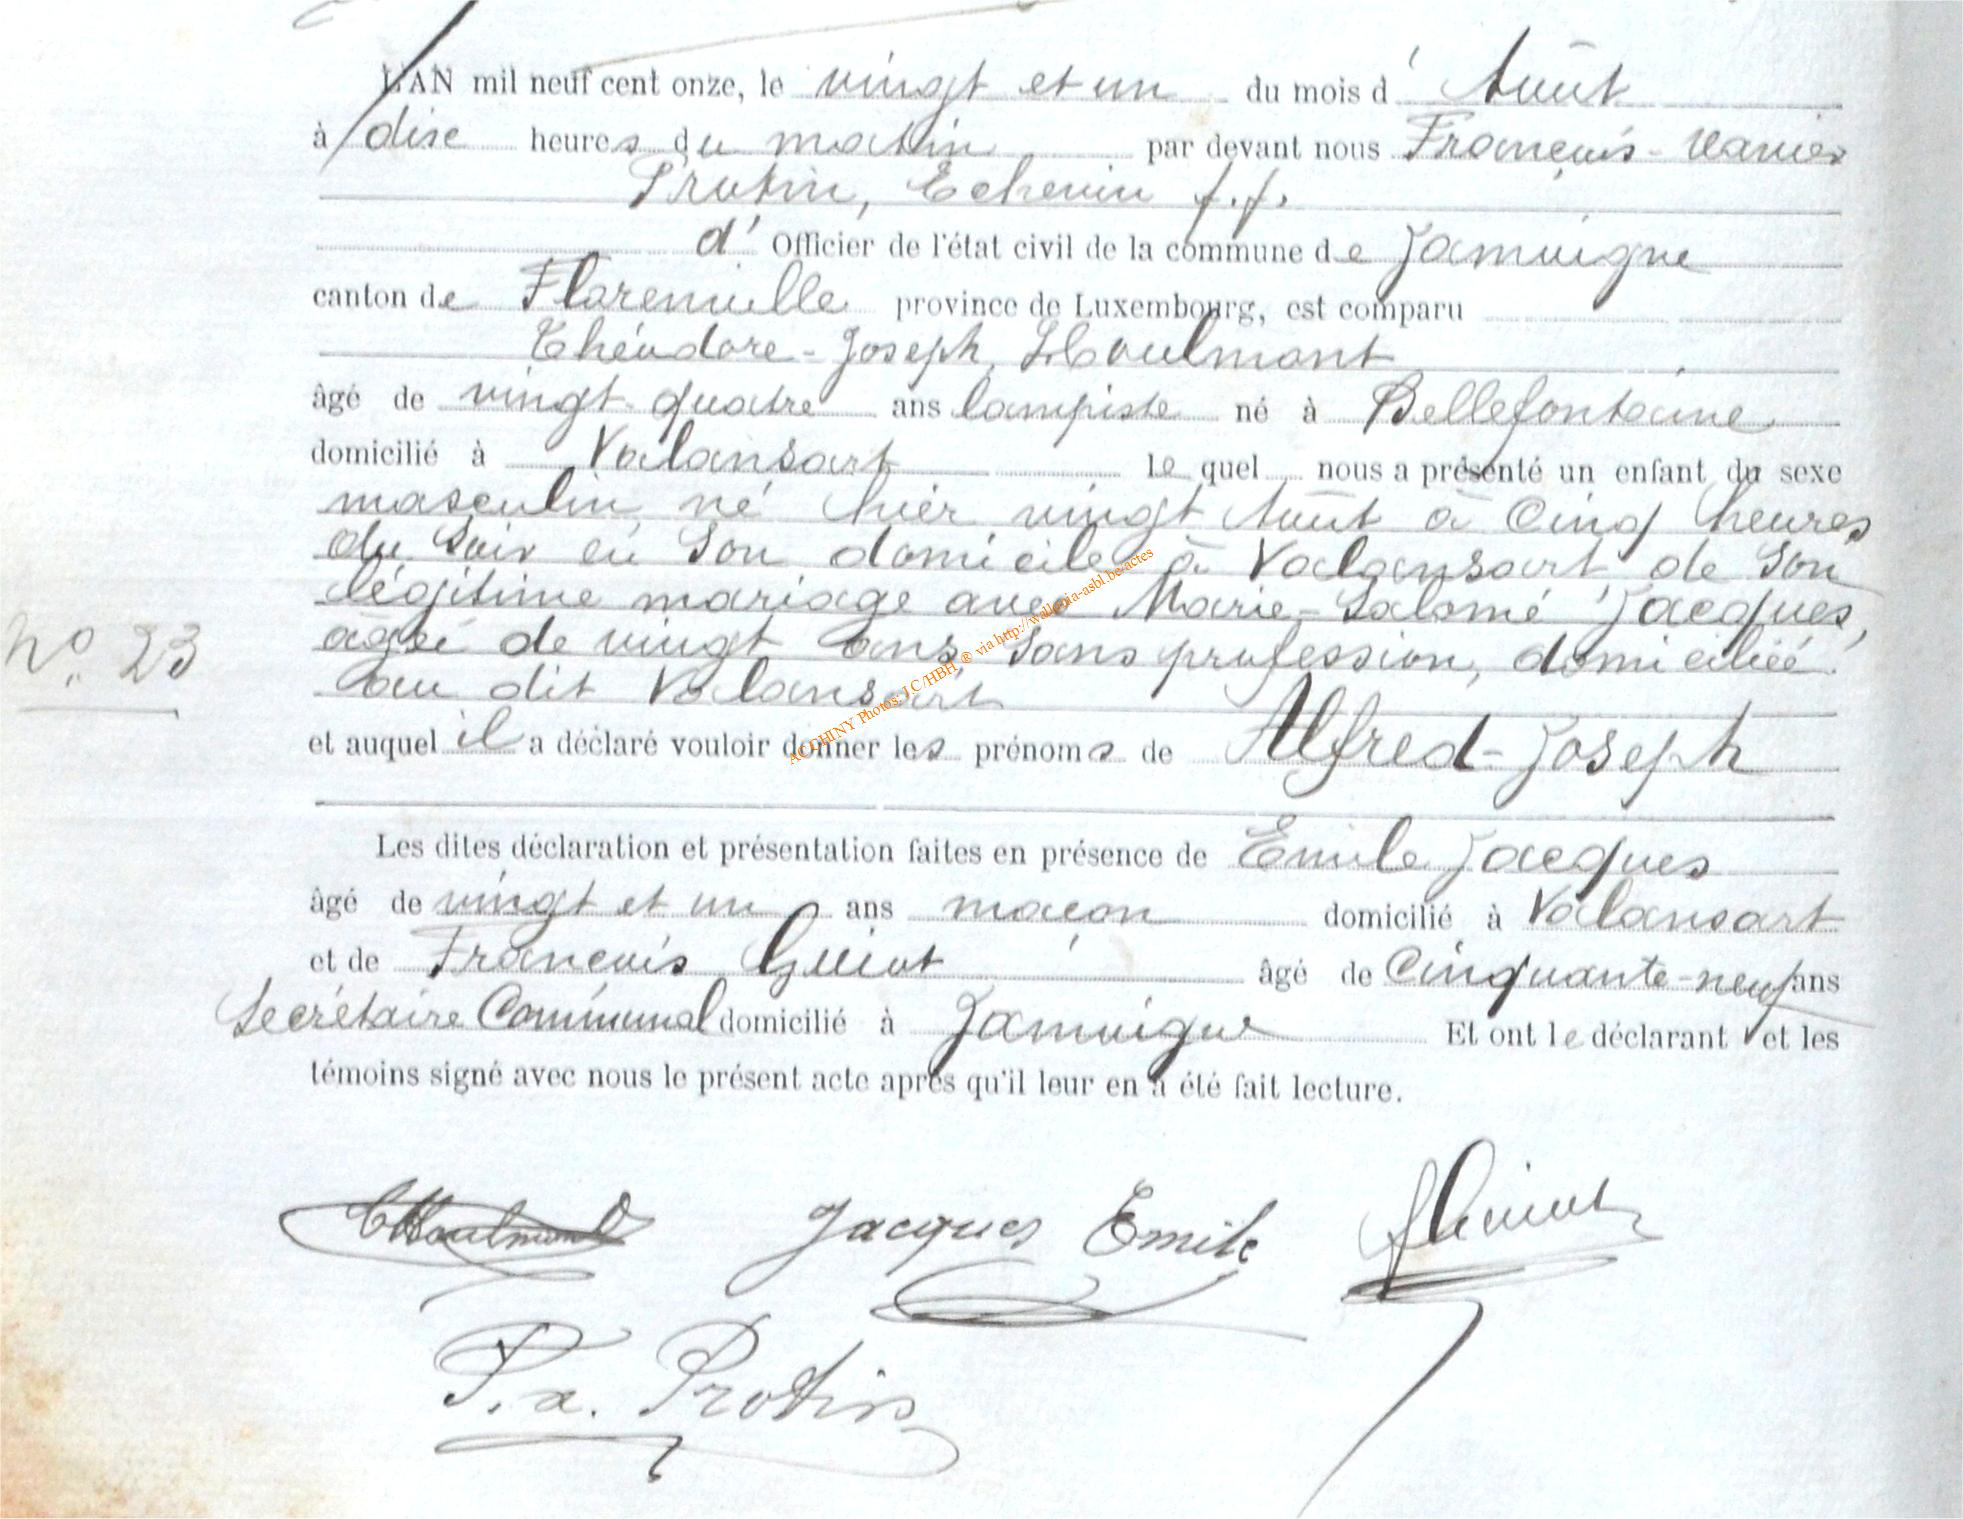 L'AN mil neuf cent onze, le vingt et un du mois d' Août
à dise heures du matin par devant nous François-Xavier
Protin, Echevin f.f.
d' Officier de l'état civil de la commune de Jamoigne
canton de Florenville province de Luxembourg, est comparu
Théodore-Joseph, Houlmont
âgé de vingt-quatre ans lampiste né à Bellefontaine
domicilié à Valansart Le quel nous a présenté un enfant du sexe
masculin, né hier vingt Août à Cinq heures
du Soir en Son domicile à Valansart, de Son
légitime mariage avec Marie-Salomé Jacques,
âgée de vingt ans, Sans profession, domiciliée
au dit Valansart
N° 23
et auquel il a déclaré vouloir donner les prénoms de Alfred-Joseph
Les dites déclaration et présentation faites en présence de Emile Jacques
âgé de vingt et un ans maçon domicilié à Valansart
et de François Guiot âgé de Cinquante-neuf ans
Secrétaire Communal domicilié à Jamoigne Et ont le déclarant et les
témoins signé avec nous le présent acte après qu'il leur en a été fait lecture.
THoulmont Jacques Emile f Guiot
F. x. Protin
ACCHINY Photos: J.C/HBH ® via http://wallonia-asbl.be-actes